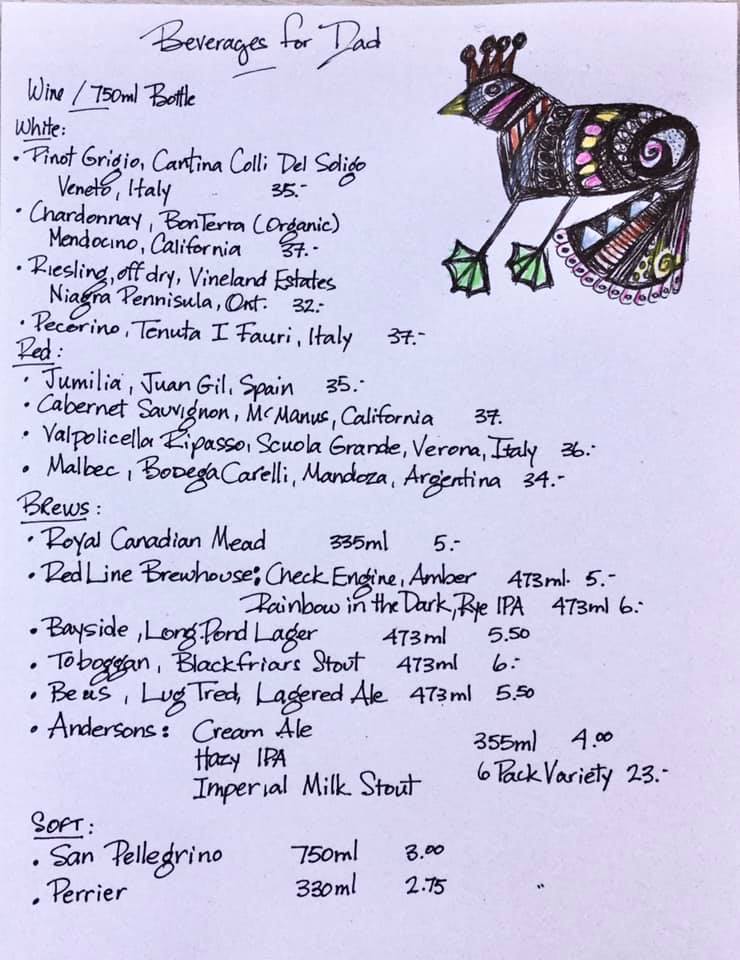 Beverages for Dad
Wine / 750ml Bottle
White:
• Pinot Grigio, Cantina Colli Del Soligo
Veneto, Italy 35.-
• Chardonnay, BonTerra (Organic)
Mendocino, California 37.-
• Riesling, off dry, Vineland Estates
Niagra Pennisula, Ont. 32.-
• Pecorino, Tenuta I Fauri, Italy 37.-
Red:
• Jumilia, Juan Gil, Spain 35.-
• Cabernet Sauvignon, McManus, California 37.
• Valpolicella Ripasso, Scuola Grande, Verona, Italy 36.-
• Malbec, Bodega Carelli, Mandoza, Argentina 34.-
Brews:
• Royal Canadian Mead 335ml 5.-
• Red Line Brewhouse: Check Engine, Amber 473ml. 5.-
Rainbow in the Dark, Rye IPA 473ml 6.-
• Bayside, Long Pond Lager 473ml 5.50
• Toboggan, Blackfriars Stout 473ml 6.-
• Beaus, Lug Tred, Lagered Ale 473ml 5.50
• Andersons: Cream Ale
Hazy IPA 355ml 4.00
Imperial Milk Stout 6 Pack Variety 23.-
Soft:
• San Pellegrino 750ml 3.00
• Perrier 330ml 2.75